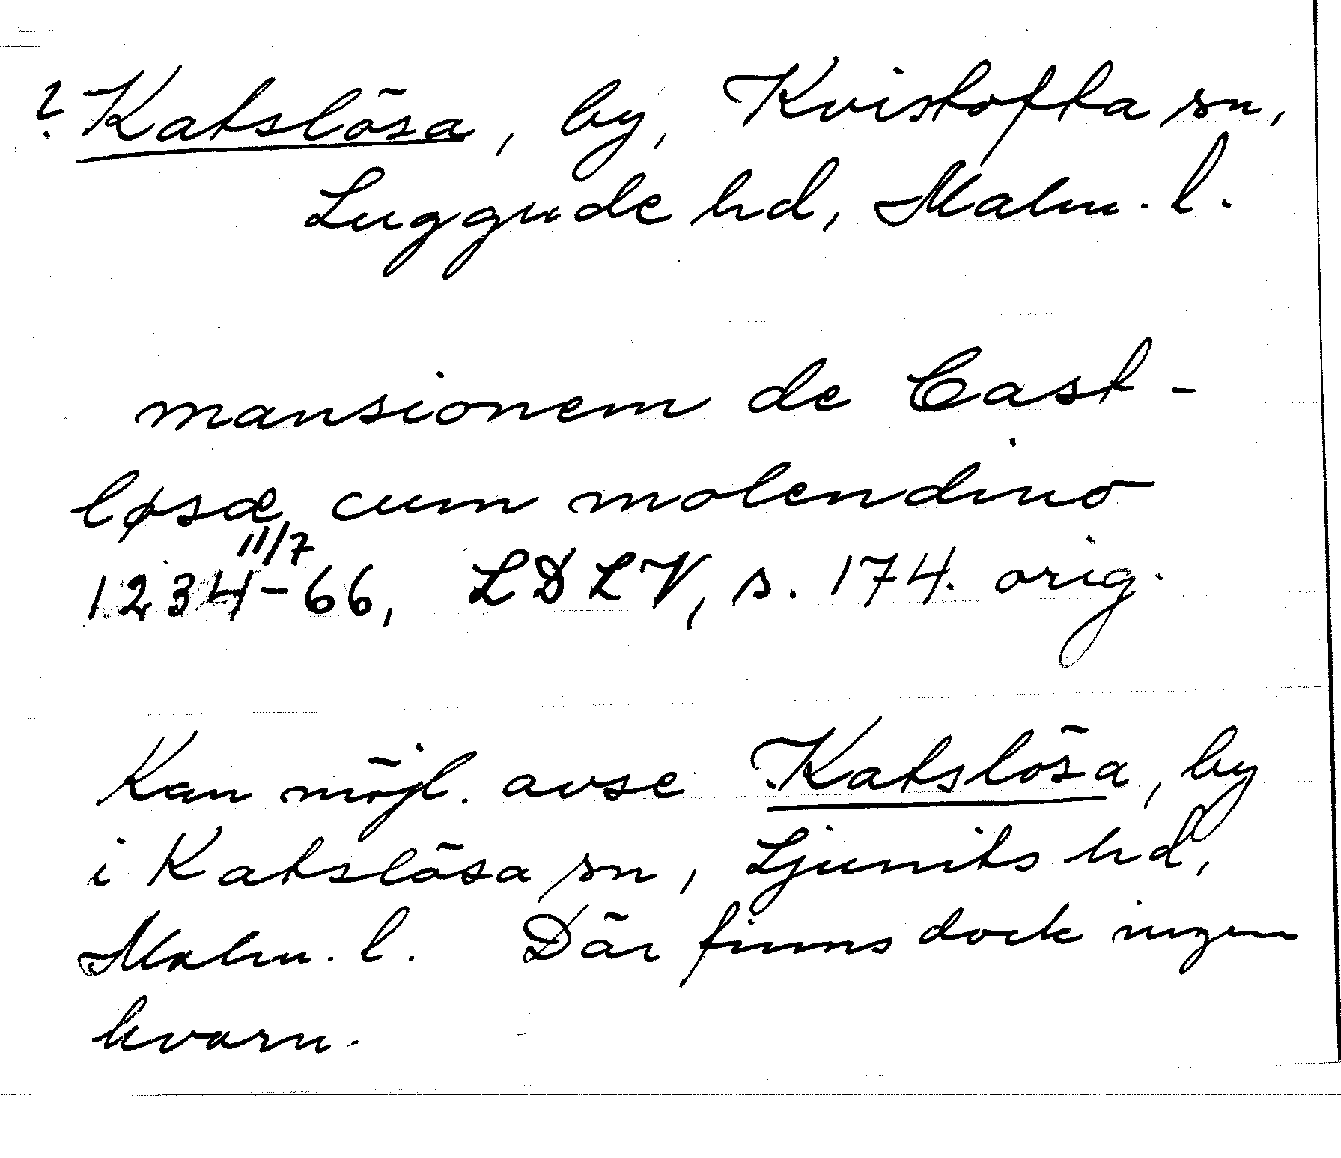 ? Katslösa, by, Kvistofta sn,
Luggude hd, Malm. l.
mansionem de Cast-
løsæ cum molendino
11/7
1234-66, LDLV, s. 174. orig.
Kan möjl. avse Katslösa, by
i Katslösa sn, Ljunits hd,
Malm. l. Där finns dock ingen
kvarn.